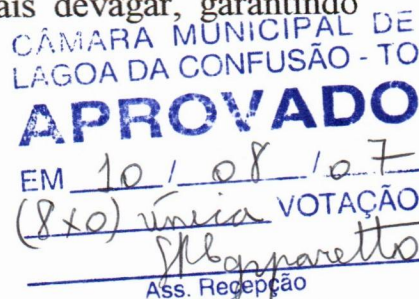 ais devagar, garantindo
CÂMARA MUNICIPAL DE
LAGOA DA CONFUSÃO - TO
APROVADO
EM 10 / 08 / 07
(8x0) única VOTAÇÃO
Ass. Recepção